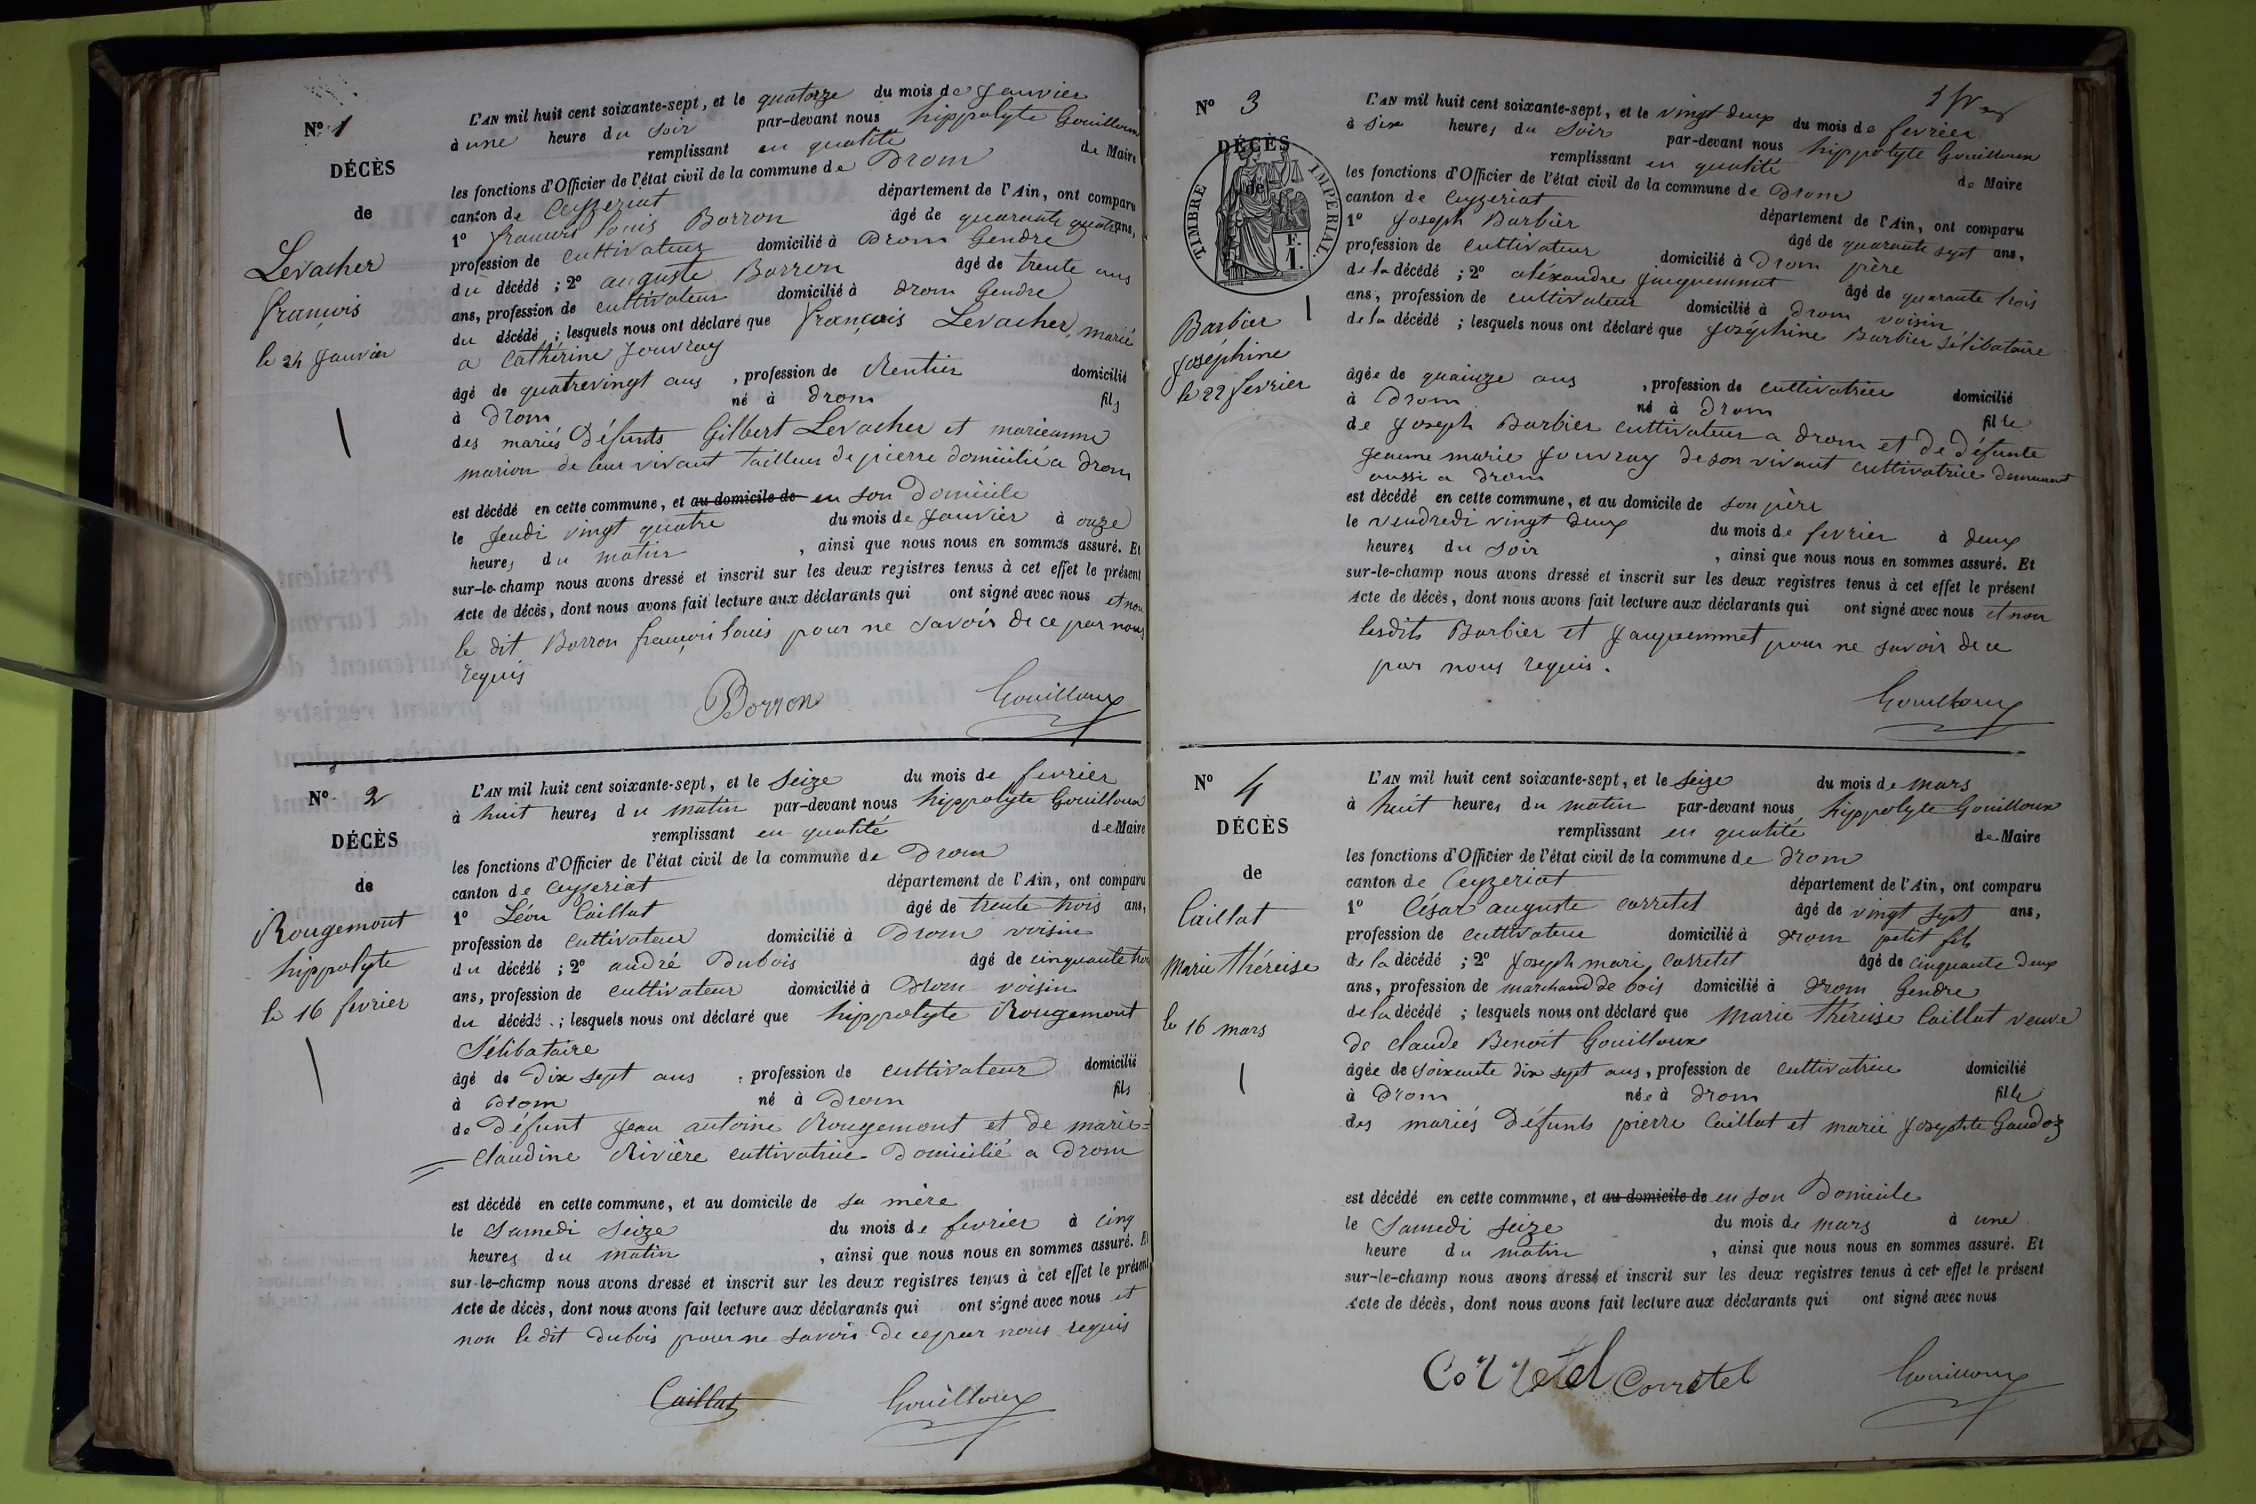 N° 1
DÉCÈS
de
Levacher
françois
le 24 Janvier
L'AN mil huit cent soixante-sept, et le quatorze du mois de Janvier
à une heure du soir par-devant nous hippolyte Gouilloux
remplissant en qualité de Maire
les fonctions d'Officier de l'état civil de la commune de Drom
canton de Ceyzeriat département de l'Ain, ont comparu
1° francois louis Borron âgé de quarante quatre ans,
profession de cultivateur domicilié à Drom Gendre
du décédé ; 2° auguste Borron âgé de trente ans
ans, profession de cultivateur domicilié à drom Gendre
du décédé ; lesquels nous ont déclaré que françois Levacher, marié
a Cathérine Jouvray
âgé de quatrevingt ans , profession de Rentier domicilié
à Drom né à Drom fils
des mariés Défunts Gilbert Levacher et marieanne
marion de leur vivant tailleur de pierre domicilié a drom
est décédé en cette commune, et au domicile de en son Domicile
le Jeudi vingt quatre du mois de Janvier à onze
heures du matin , ainsi que nous nous en sommes assuré. Et
sur-le-champ nous avons dressé et inscrit sur les deux registres tenus à cet effet le présent
Acte de décès, dont nous avons fait lecture aux déclarants qui ont signé avec nous et non
le dit Borron françois louis pour ne savoir de ce par nous
requis
Borron Gouilloux
N° 2
DÉCÈS
de
Rougemont
hippolyte
le 16 fevrier
L'AN mil huit cent soixante-sept, et le Seize du mois de fevrier
à huit heures du matin par-devant nous hippolyte Gouilloux
remplissant en qualité de Maire
les fonctions d'Officier de l'état civil de la commune de Drom
canton de Ceyzeriat département de l'Ain, ont comparu
1° Léon Caillat âgé de trente trois ans,
profession de cultivateur domicilié à Drom voisin
du décédé ; 2° andré Dubois âgé de cinquante trois
ans, profession de cultivateur domicilié à Drom voisin
du décédé ; lesquels nous ont déclaré que hippolyte Rougemont
Sélibataire
âgé de Dix sept ans , profession de cultivateur domicilié
à Drom né à Drom fils
de Défunt Jean antoine Rougemont et de marie=
claudine Rivière cultivatrice Domicilié a Drom
est décédé en cette commune, et au domicile de sa mère
le Samedi Seize du mois de fevrier à cinq
heures du matin , ainsi que nous nous en sommes assuré. Et
sur-le-champ nous avons dressé et inscrit sur les deux registres tenus à cet effet le présent
Acte de décès, dont nous avons fait lecture aux déclarants qui ont signé avec nous et
non le dit Dubois pour ne savoir de ce par nous requis
Caillat Gouilloux
N° 3
DÉCÈS
de
TIMBRE IMPÉRIAL
F.
1.
Barbier
Joséphine
le 22 fevrier
L'AN mil huit cent soixante-sept, et le vingt deux du mois de fevrier
à six heures du Soir par-devant nous hippolyte Gouilloux
remplissant en qualité de Maire
les fonctions d'Officier de l'état civil de la commune de Drom
canton de Ceyzeriat département de l'Ain, ont comparu
1° Joseph Barbier âgé de quarante sept ans,
profession de cultivateur domicilié à Drom père
de la décédé ; 2° aléxandre Jacquemmet âgé de quarante trois
ans, profession de cultivateur domicilié à Drom voisin
de la décédé ; lesquels nous ont déclaré que Joséphine Barbier Sélibataire
âgée de quainze ans , profession de cultivatrice domicilié
à Drom né à Drom fille
de Joseph Barbier cultivateur a Drom et de Défunte
Jeanne marie Jouvray de son vivant cultivatrice demeurant
aussi a drom
est décédé en cette commune, et au domicile de son père
le vendredi vingt Deux du mois de fevrier à deux
heures du soir , ainsi que nous nous en sommes assuré. Et
sur-le-champ nous avons dressé et inscrit sur les deux registres tenus à cet effet le présent
Acte de décès, dont nous avons fait lecture aux déclarants qui ont signé avec nous et non
lesdits Barbier et Jacquemmet pour ne savoir de ce
par nous requis.
Gouilloux
N° 4
DÉCÈS
de
Caillat
Marie théreise
le 16 mars
L'AN mil huit cent soixante-sept, et le Seize du mois de mars
à huit heures du matin par-devant nous hippolyte Gouilloux
remplissant en qualité de Maire
les fonctions d'Officier de l'état civil de la commune de Drom
canton de Ceyzeriat département de l'Ain, ont comparu
1° César auguste corretel âgé de vingt sept ans,
profession de cultivateur domicilié à Drom petit fils
de la décédé ; 2° Joseph mari corretel âgé de cinquante deux
ans, profession de marchand de bois domicilié à Drom Gendre
de la décédé ; lesquels nous ont déclaré que Marie théreise Caillat veuve
de claude Benoit Gouilloux
âgée de soixante dix sept ans, profession de cultivatrice domicilié
à Drom née à drom fille
des mariés Défunts pierre Caillat et marie Josephte Gaudoz
est décédé en cette commune, et au domicile de en son Domicile
le Samedi seize du mois de mars à une
heure du matin , ainsi que nous nous en sommes assuré. Et
sur-le-champ nous avons dressé et inscrit sur les deux registres tenus à cet effet le présent
Acte de décès, dont nous avons fait lecture aux déclarants qui ont signé avec nous
Corretel Corretel Gouilloux